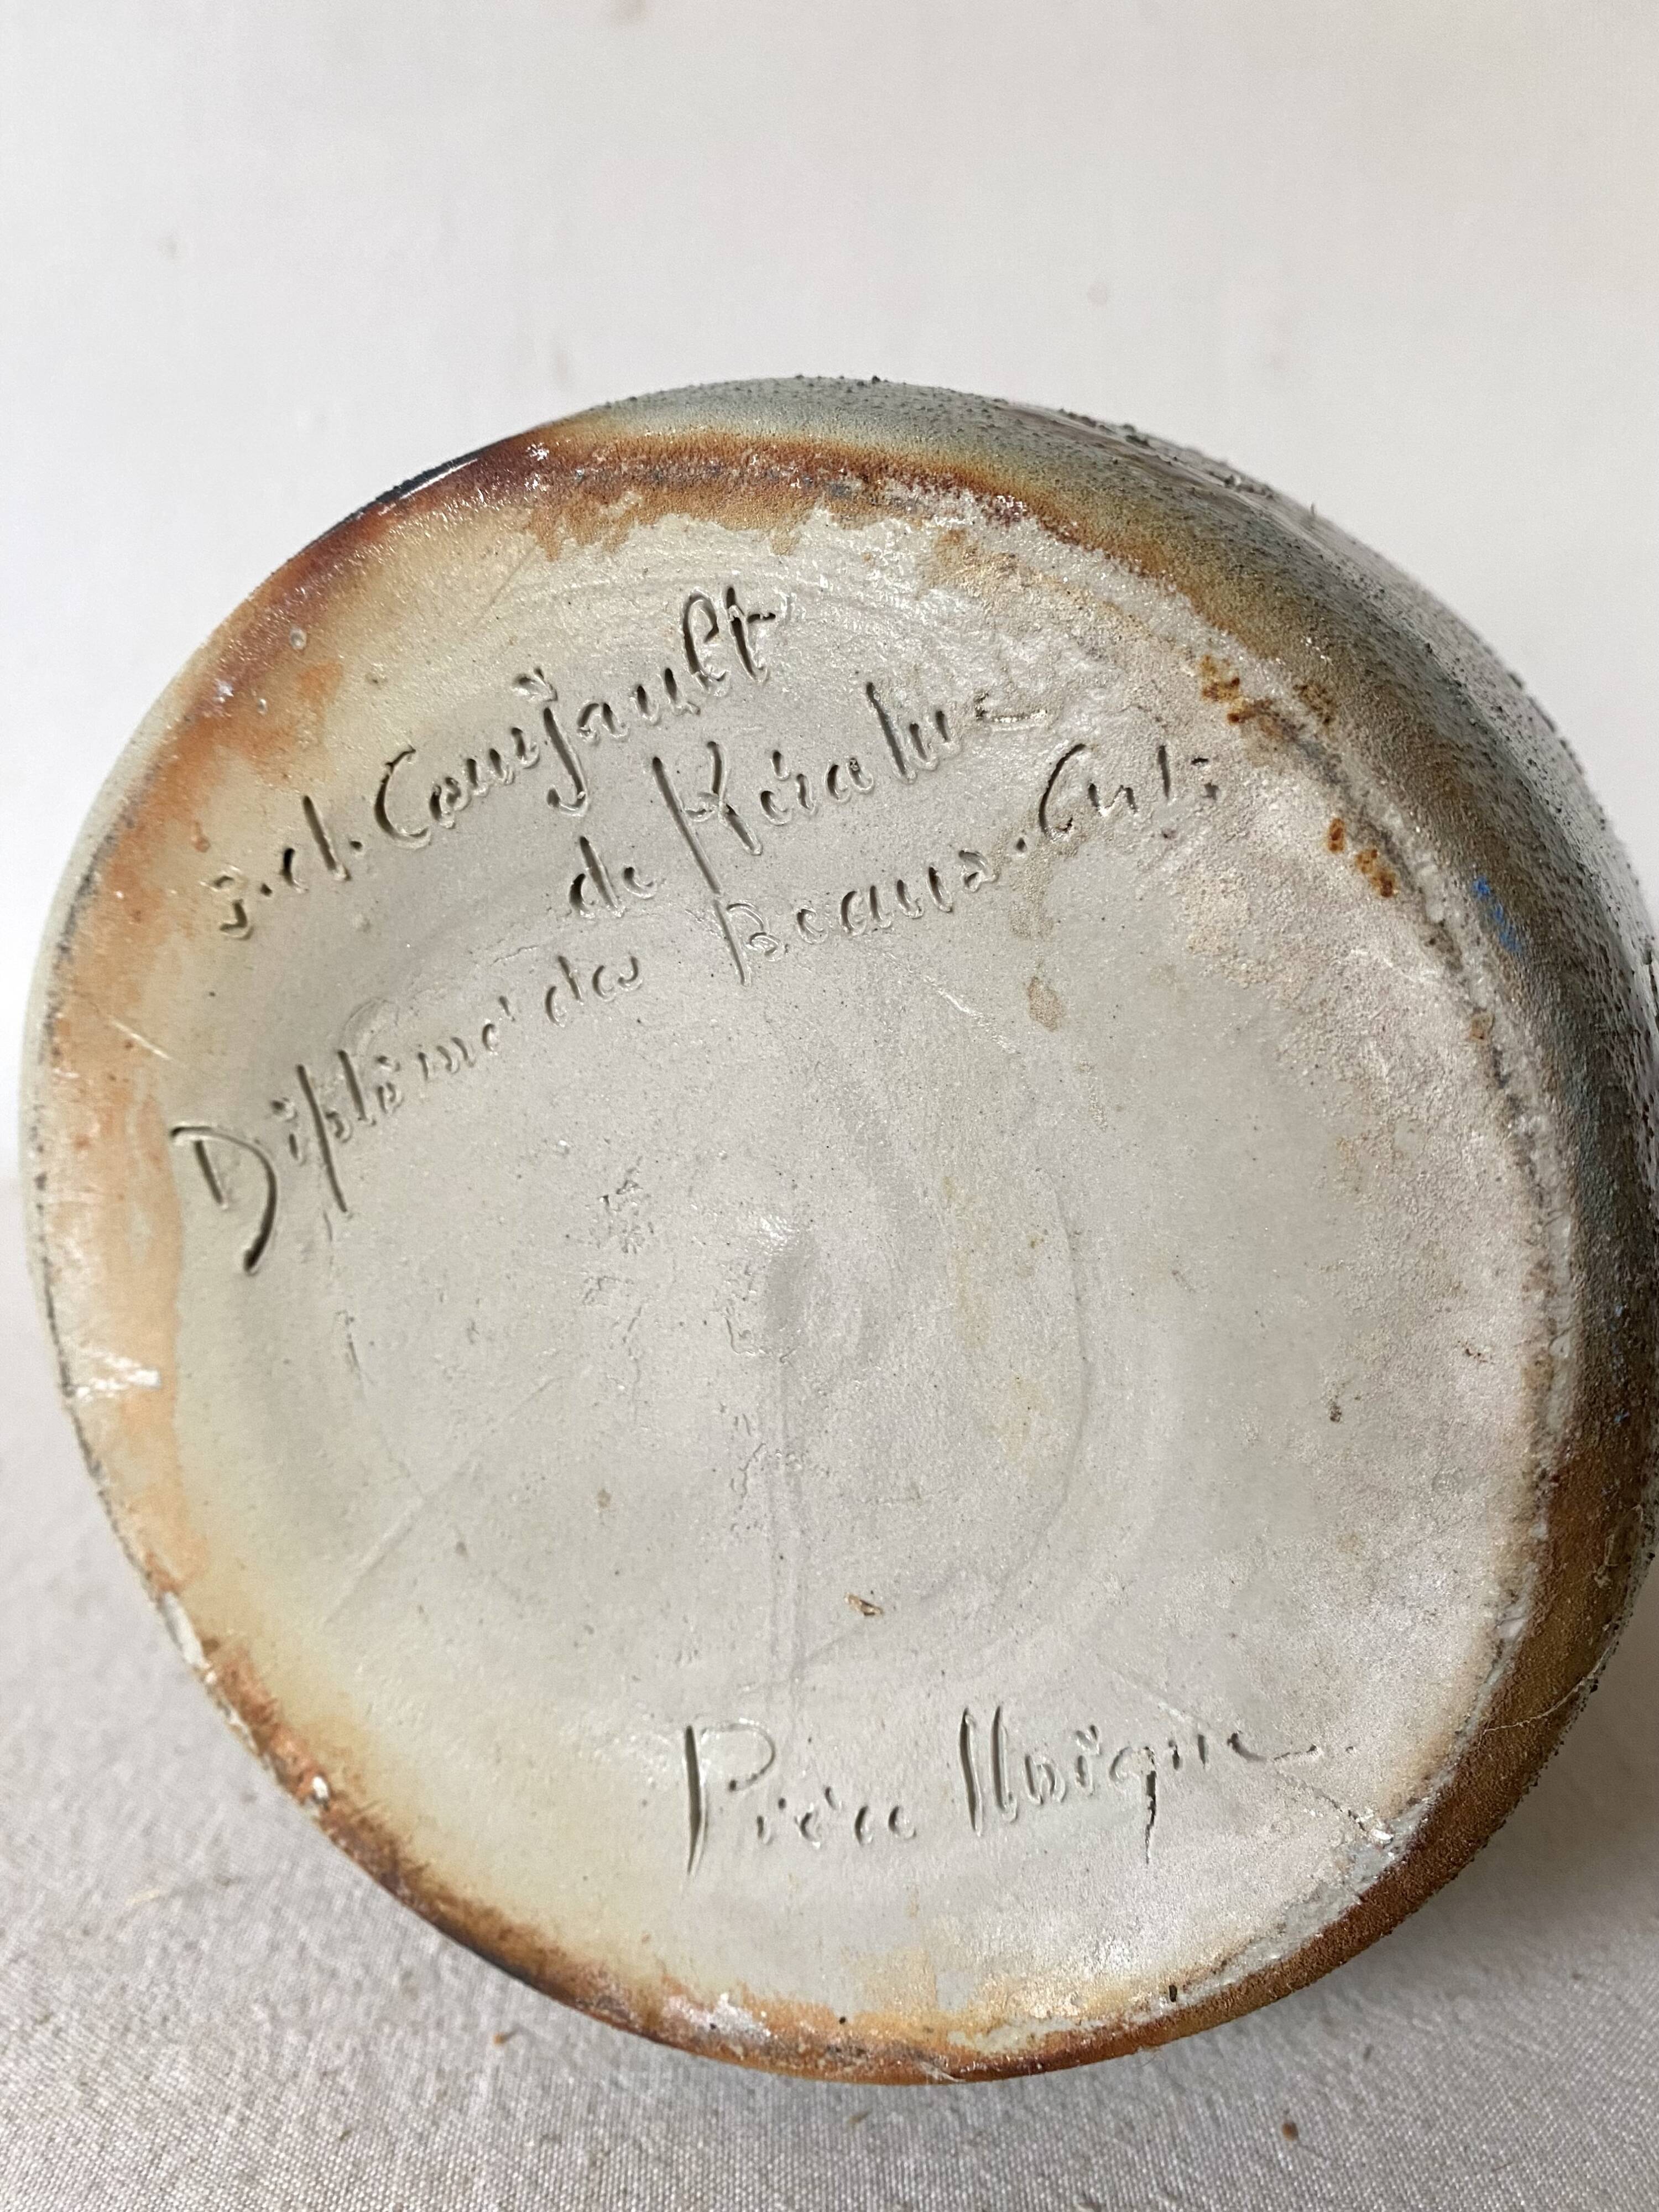 J.cl. Courjault
de Kéraluc
Diplômé des Beaux.Arts
Pièce Unique